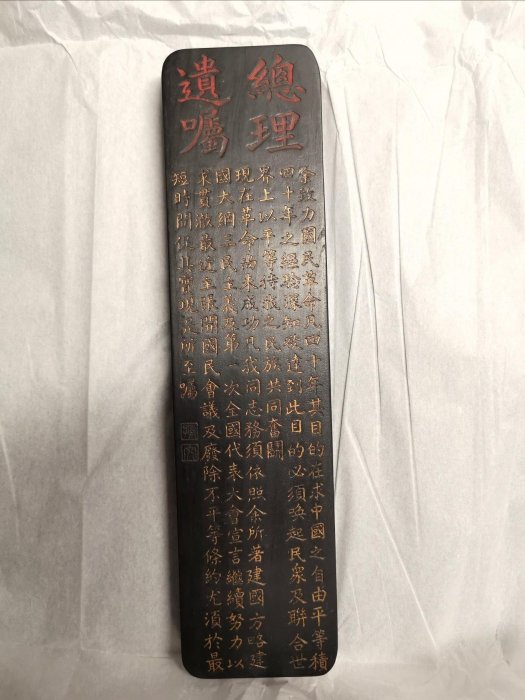 總理
遺囑
余致力國民革命凡四十年其目的在求中國之自由平等積
四十年之經驗深知欲達到此目的必須喚起民眾及聯合世
界上以平等待我之民族共同奮鬪
現在革命尚未成功凡我同志務須依照余所著建國方略建
國大綱三民主義及第一次全國代表大會宣言繼續努力以
求貫徹最近主張開國民會議及廢除不平等條約尤須於最
短時間促其實現是所至囑